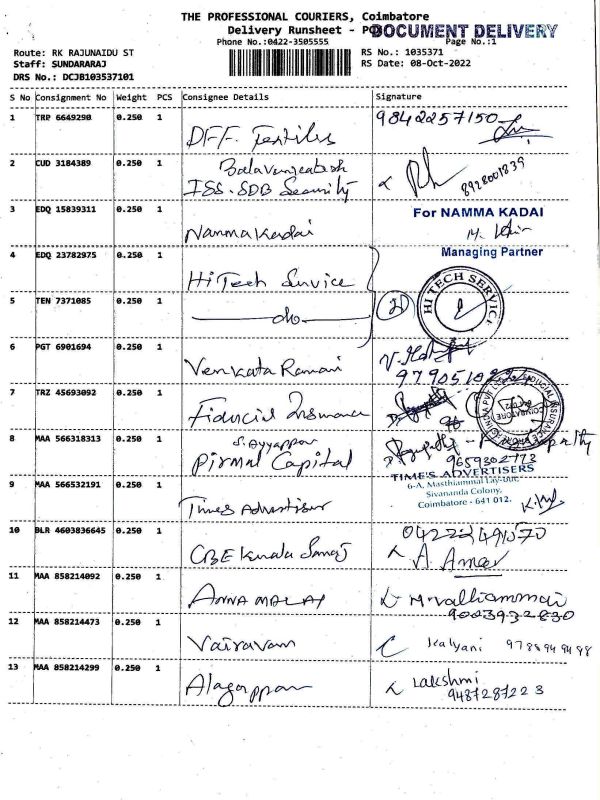 THE PROFESSIONAL COURIERS, Coimbatore
Delivery Runsheet - POD
DOCUMENT DELIVERY
Phone No.:0422-3505555
Page No.:1
Route: RK RAJUNAIDU ST
RS No.: 1035371
Staff: SUNDARARAJ
RS Date: 08-Oct-2022
DRS No.: DCJB103537101
S No Consignment No Weight PCS Consignee Details Signature
1 TRP 6649290 0.250 1 DFF. Textiles 9842257150
2 CUD 3184389 0.250 1 Balavenkatesh
ISS-SDB Security 8928001839
3 EDQ 15839311 0.250 1 Namma Kadai
For NAMMA KADAI
Managing Partner
4 EDQ 23782975 0.250 1 Hi Tech Service
HI TECH SERVICE
5 TEN 7371085 0.250 1 do
6 PGT 6901694 0.250 1 Venkata Ramani
7 TRZ 45693092 0.250 1 Fiducial Insurance
8 MAA 566318313 0.250 1 S. Ayyappan
Pirmal Capital 9659302773
TIME'S ADVERTISERS
6-A, Masthiammal Lay-out,
Sivananda Colony,
Coimbatore - 641 012.
9 MAA 566532191 0.250 1 Times Advertiser
10 BLR 4603836645 0.250 1 CBE Kerala Samaj
A. Amar
11 MAA 858214092 0.250 1 ANNAMALAI M. Valliammai
9003932830
12 MAA 858214473 0.250 1 Vairavan Kalyani
13 MAA 858214299 0.250 1 Alagappan Lakshmi
9487287223